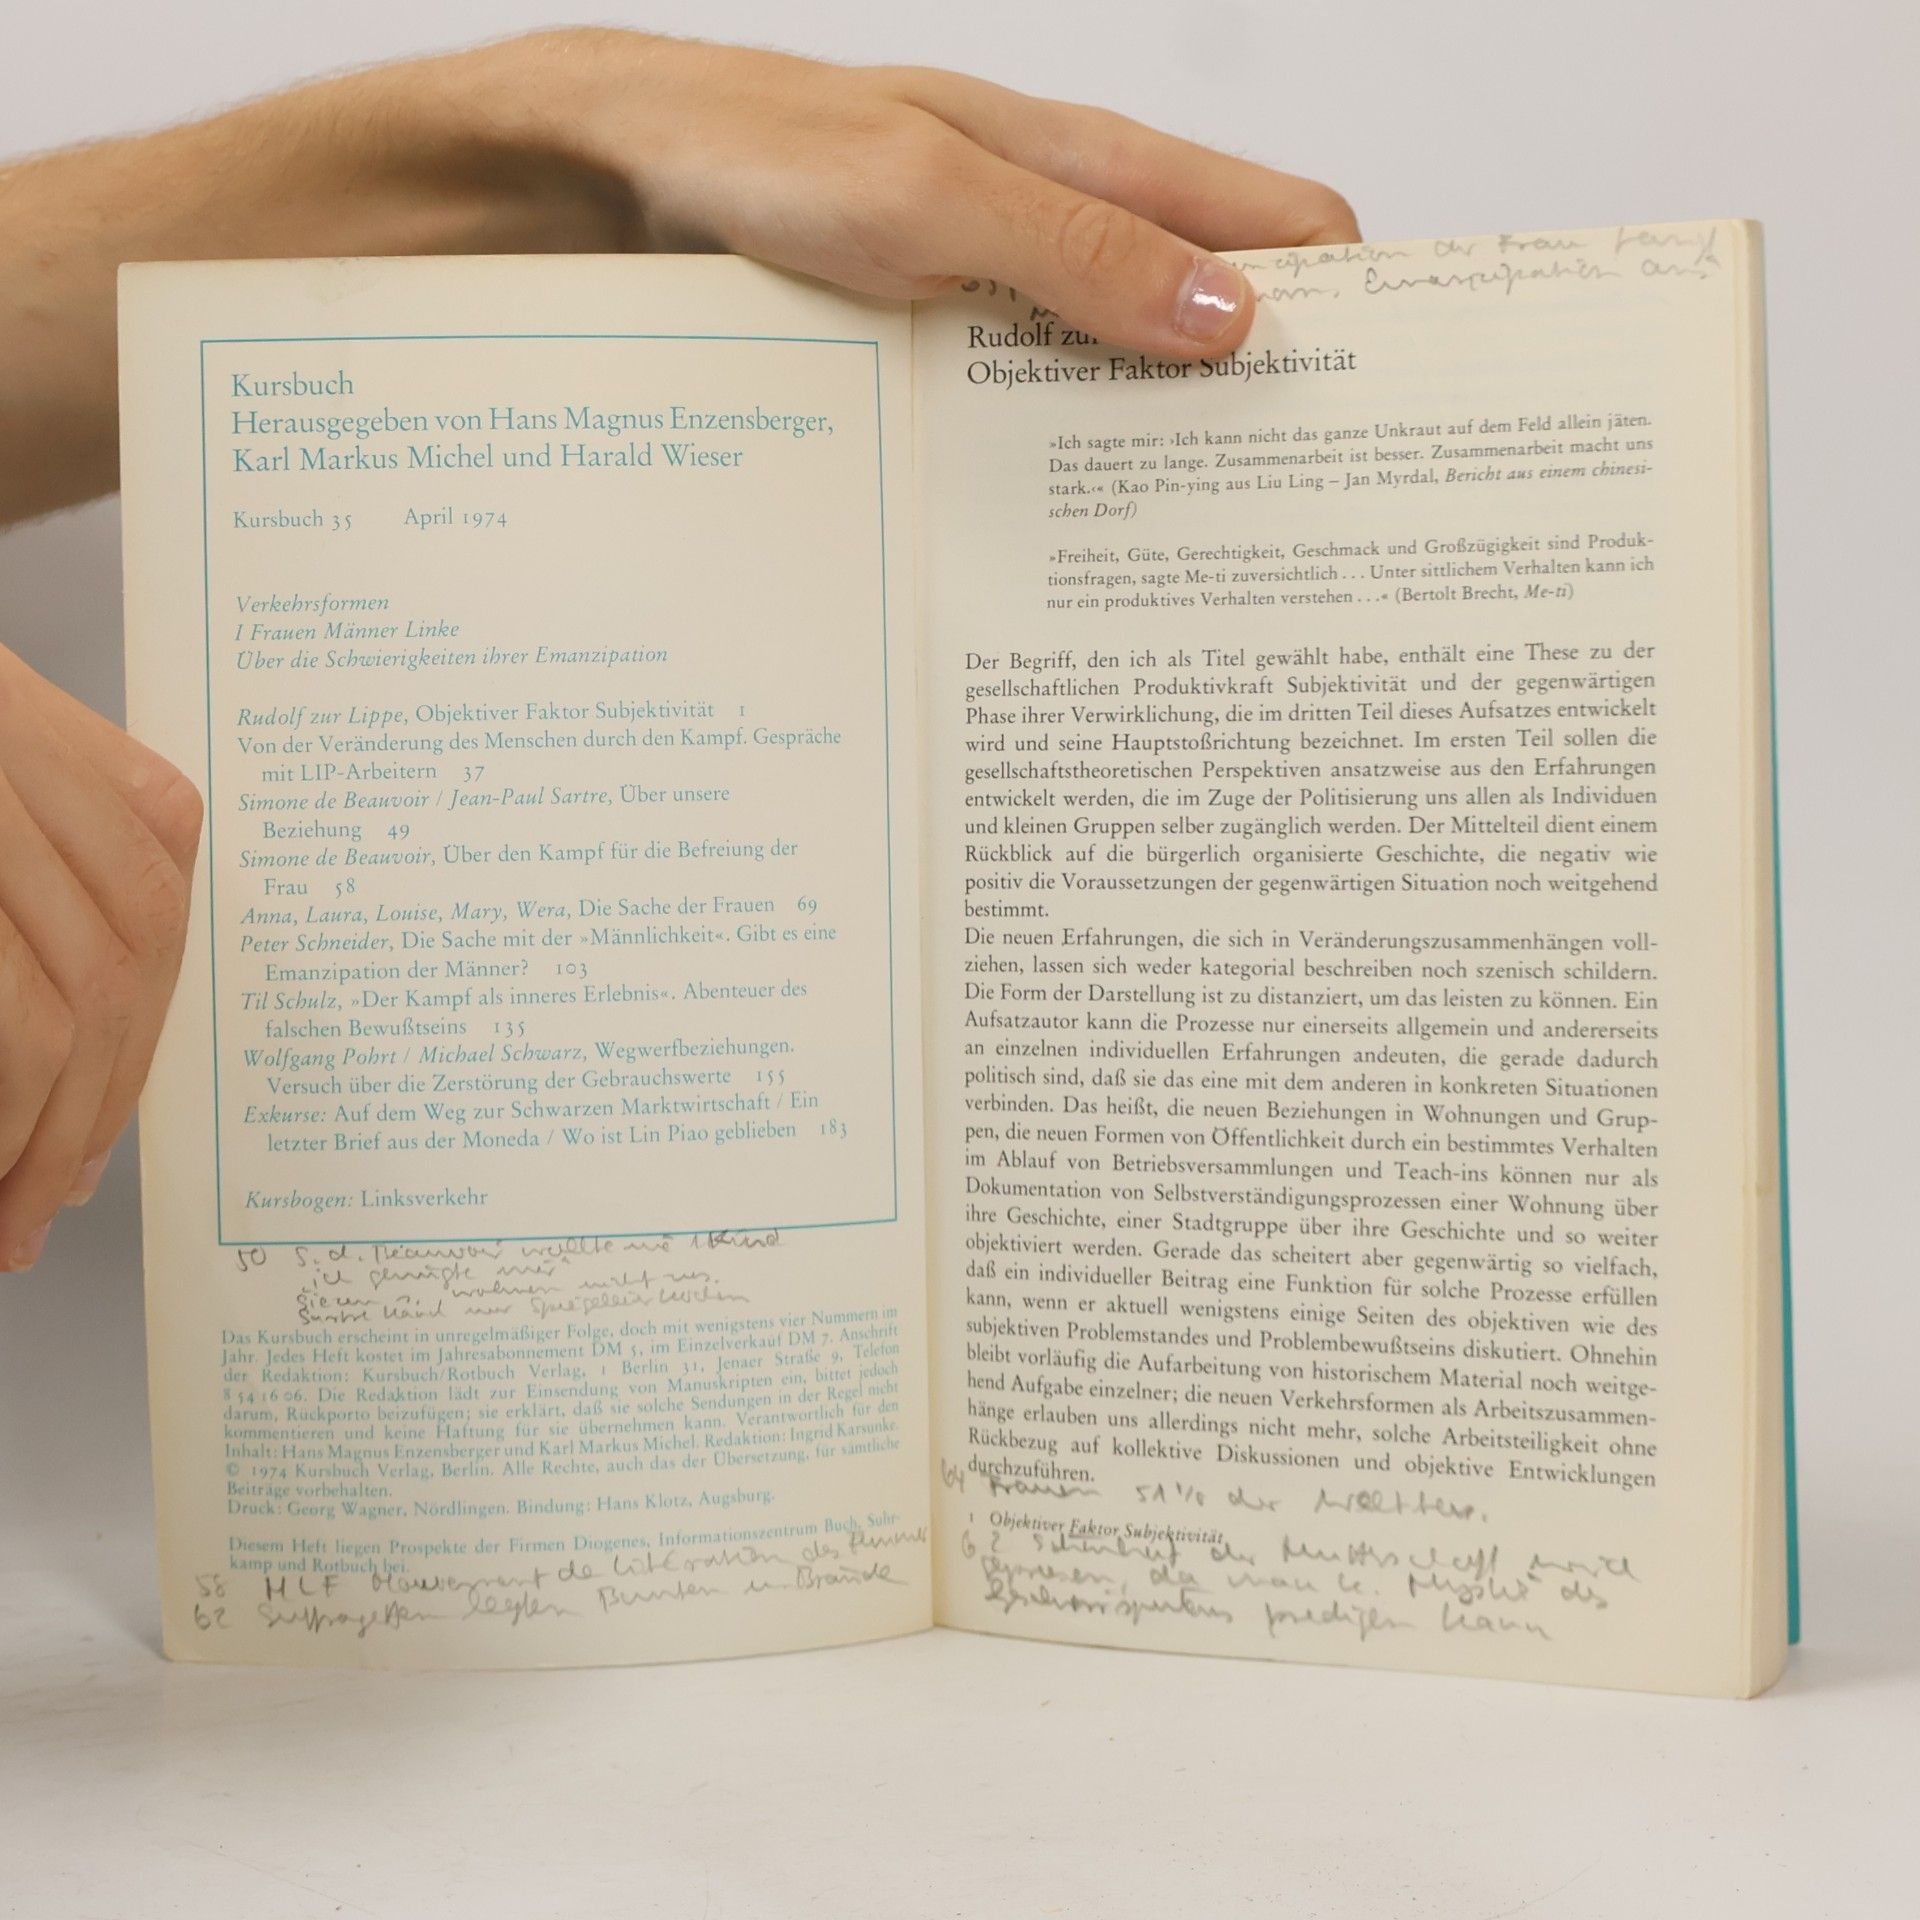 Kursbuch
Herausgegeben von Hans Magnus Enzensberger,
Karl Markus Michel und Harald Wieser
Kursbuch 35 April 1974
Verkehrsformen
I Frauen Männer Linke
Über die Schwierigkeiten ihrer Emanzipation
Rudolf zur Lippe, Objektiver Faktor Subjektivität 1
Von der Veränderung des Menschen durch den Kampf. Gespräche
mit LIP-Arbeitern 37
Simone de Beauvoir / Jean-Paul Sartre, Über unsere
Beziehung 49
Simone de Beauvoir, Über den Kampf für die Befreiung der
Frau 58
Anna, Laura, Louise, Mary, Wera, Die Sache der Frauen 69
Peter Schneider, Die Sache mit der »Männlichkeit«. Gibt es eine
Emanzipation der Männer? 103
Til Schulz, »Der Kampf als inneres Erlebnis«. Abenteuer des
falschen Bewußtseins 135
Wolfgang Pohrt / Michael Schwarz, Wegwerfbeziehungen.
Versuch über die Zerstörung der Gebrauchswerte 155
Exkurse: Auf dem Weg zur Schwarzen Marktwirtschaft / Ein
letzter Brief aus der Moneda / Wo ist Lin Piao geblieben 183
Kursbogen: Linksverkehr
50 S. d. Beauvoir wollte nie 1 Kind
ich genügte mir
Siezen wohnen nicht zus.
Sartre kann nur Spiegeleier kochen
Das Kursbuch erscheint in unregelmäßiger Folge, doch mit wenigstens vier Nummern im
Jahr. Jedes Heft kostet im Jahresabonnement DM 5, im Einzelverkauf DM 7. Anschrift
der Redaktion: Kursbuch/Rotbuch Verlag, 1 Berlin 31, Jenaer Straße 9, Telefon
8 54 16 06. Die Redaktion lädt zur Einsendung von Manuskripten ein, bittet jedoch
darum, Rückporto beizufügen; sie erklärt, daß sie solche Sendungen in der Regel nicht
kommentieren und keine Haftung für sie übernehmen kann. Verantwortlich für den
Inhalt: Hans Magnus Enzensberger und Karl Markus Michel. Redaktion: Ingrid Karsunke.
© 1974 Kursbuch Verlag, Berlin. Alle Rechte, auch das der Übersetzung, für sämtliche
Beiträge vorbehalten.
Druck: Georg Wagner, Nördlingen. Bindung: Hans Klotz, Augsburg.
Diesem Heft liegen Prospekte der Firmen Diogenes, Informationszentrum Buch, Suhr-
kamp und Rotbuch bei.
58 MLF Mouvement de Libération des Femmes
62 Suffragetten legten Bomben u. Brände
der Frau
Emanzipation
Rudolf zur
Objektiver Faktor Subjektivität
»Ich sagte mir: ›Ich kann nicht das ganze Unkraut auf dem Feld allein jäten.
Das dauert zu lange. Zusammenarbeit ist besser. Zusammenarbeit macht uns
stark.‹« (Kao Pin-ying aus Liu Ling – Jan Myrdal, Bericht aus einem chinesi-
schen Dorf)
»Freiheit, Güte, Gerechtigkeit, Geschmack und Großzügigkeit sind Produk-
tionsfragen, sagte Me-ti zuversichtlich . . . Unter sittlichem Verhalten kann ich
nur ein produktives Verhalten verstehen . . .« (Bertolt Brecht, Me-ti)
Der Begriff, den ich als Titel gewählt habe, enthält eine These zu der
gesellschaftlichen Produktivkraft Subjektivität und der gegenwärtigen
Phase ihrer Verwirklichung, die im dritten Teil dieses Aufsatzes entwickelt
wird und seine Hauptstoßrichtung bezeichnet. Im ersten Teil sollen die
gesellschaftstheoretischen Perspektiven ansatzweise aus den Erfahrungen
entwickelt werden, die im Zuge der Politisierung uns allen als Individuen
und kleinen Gruppen selber zugänglich werden. Der Mittelteil dient einem
Rückblick auf die bürgerlich organisierte Geschichte, die negativ wie
positiv die Voraussetzungen der gegenwärtigen Situation noch weitgehend
bestimmt.
Die neuen Erfahrungen, die sich in Veränderungszusammenhängen voll-
ziehen, lassen sich weder kategorial beschreiben noch szenisch schildern.
Die Form der Darstellung ist zu distanziert, um das leisten zu können. Ein
Aufsatzautor kann die Prozesse nur einerseits allgemein und andererseits
an einzelnen individuellen Erfahrungen andeuten, die gerade dadurch
politisch sind, daß sie das eine mit dem anderen in konkreten Situationen
verbinden. Das heißt, die neuen Beziehungen in Wohnungen und Grup-
pen, die neuen Formen von Öffentlichkeit durch ein bestimmtes Verhalten
im Ablauf von Betriebsversammlungen und Teach-ins können nur als
Dokumentation von Selbstverständigungsprozessen einer Wohnung über
ihre Geschichte, einer Stadtgruppe über ihre Geschichte und so weiter
objektiviert werden. Gerade das scheitert aber gegenwärtig so vielfach,
daß ein individueller Beitrag eine Funktion für solche Prozesse erfüllen
kann, wenn er aktuell wenigstens einige Seiten des objektiven wie des
subjektiven Problemstandes und Problembewußtseins diskutiert. Ohnehin
bleibt vorläufig die Aufarbeitung von historischem Material noch weitge-
hend Aufgabe einzelner; die neuen Verkehrsformen als Arbeitszusammen-
hänge erlauben uns allerdings nicht mehr, solche Arbeitsteiligkeit ohne
Rückbezug auf kollektive Diskussionen und objektive Entwicklungen
durchzuführen.
64 Frauen 51 % der Weltbev.
1 Objektiver Faktor Subjektivität
62 Schönheit der Mutterschaft wird
gepriesen, da man k. Mystik des
predigen kann